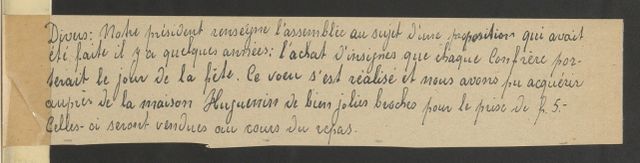 Divers: Notre président renseigne l'assemblée au sujet d'une proposition qui avait
été faite il y a quelques années: l'achat d'insignes que chaque Confrère por-
terait le jour de la fête. Ce voeu s'est réalisé et nous avons pu acquérir
auprès de la maison Huguenin de bien jolies broches pour le prise de fr. 5.-
Celles-ci seront vendues au cours du repas.